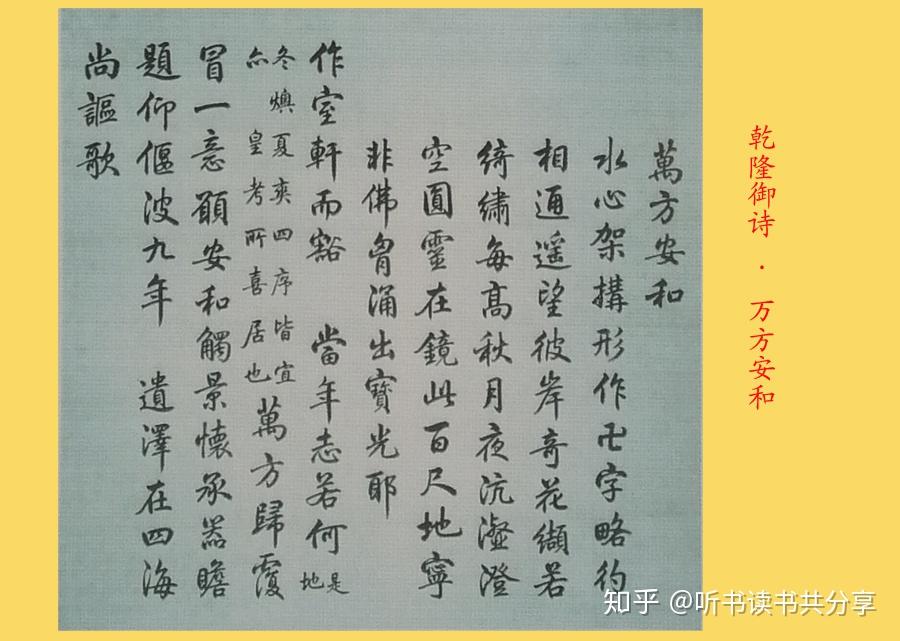 乾隆御诗 · 万方安和
萬方安和
水心架構形作卍字略彴
相通遥望彼岸奇花纈若
綺繡每高秋月夜沆瀣澄
空圓靈在鏡此百尺地寧
非佛胷涌出寶光耶
作室軒而豁 當年志若何 是地
冬燠夏爽四序皆宜亦皇考所喜居也 萬方歸覆
冒一意願安和觸景懷承器瞻
題仰偃波九年 遺澤在四海
尚謳歌
知乎 @听书读书共分享